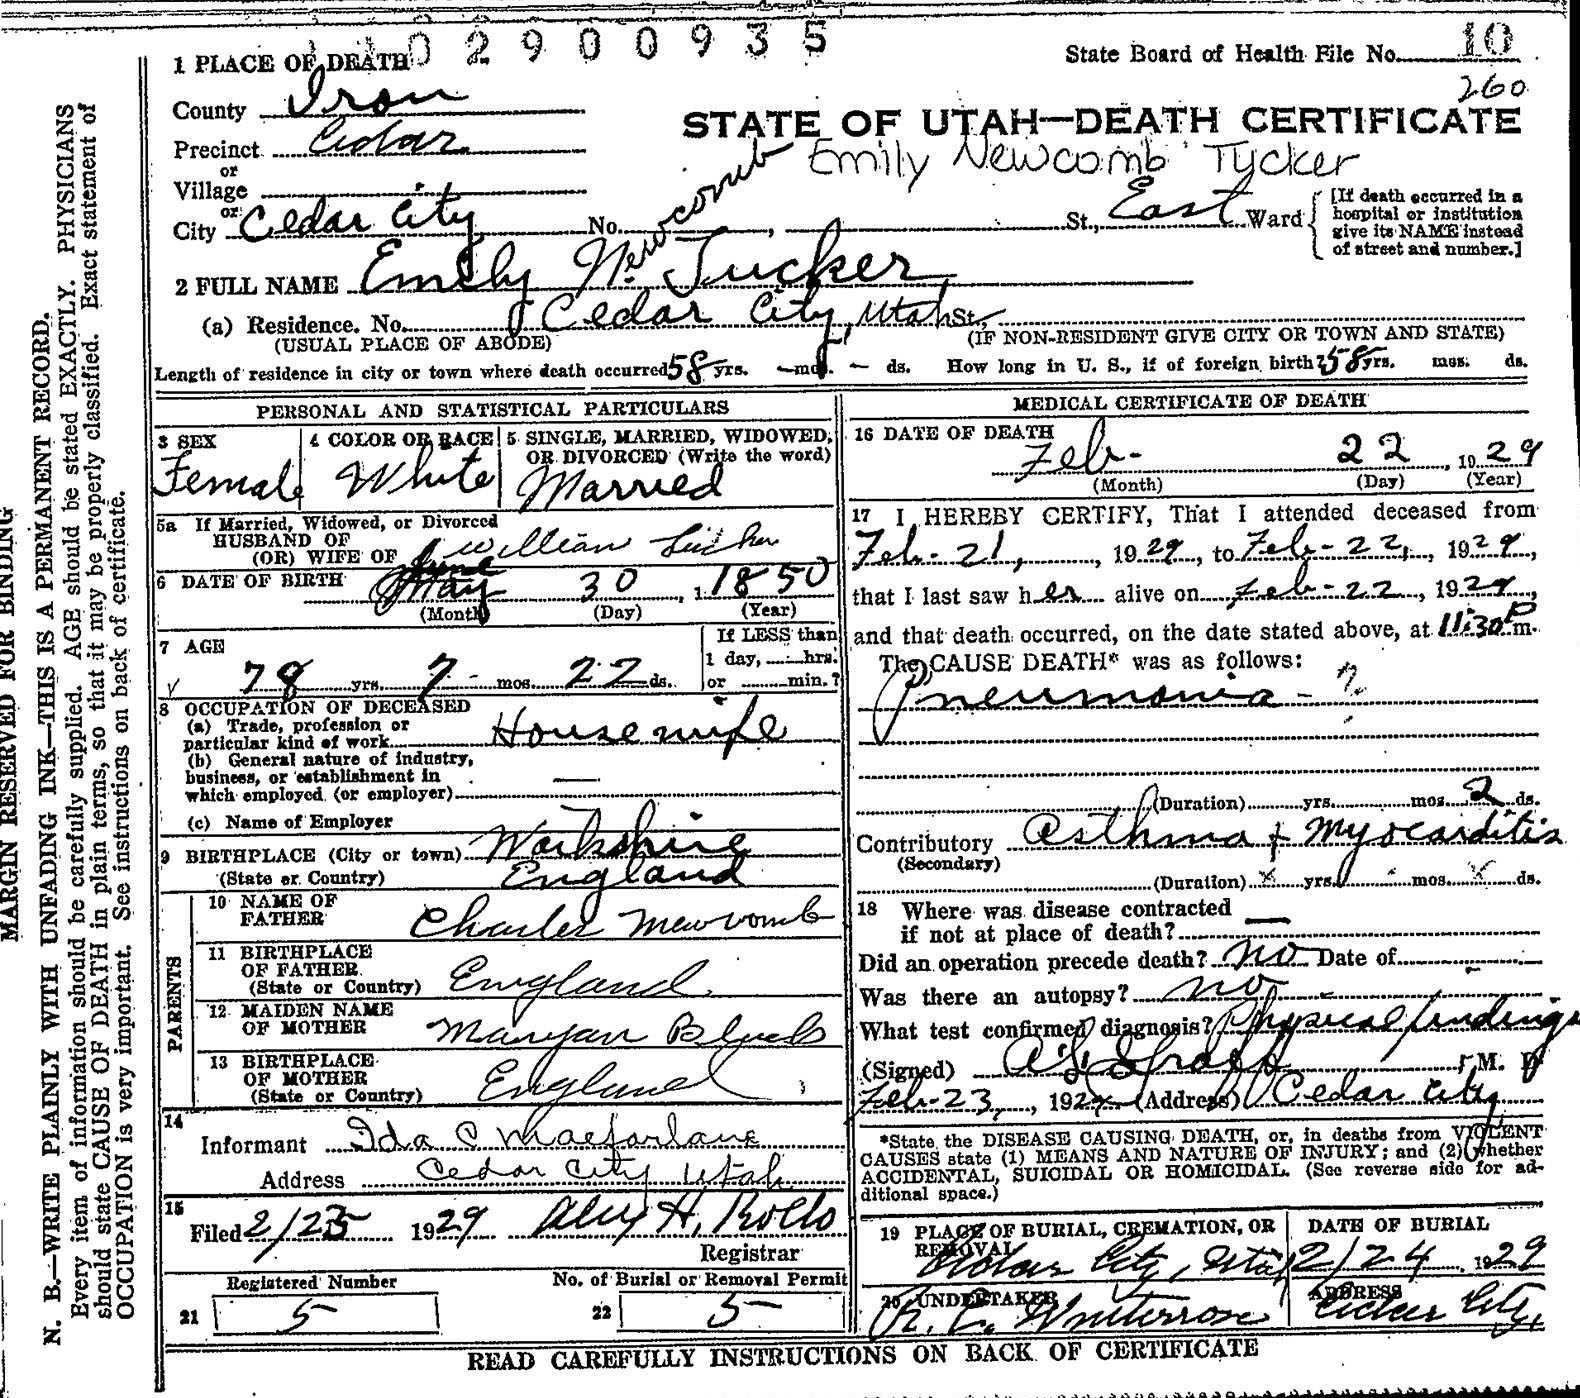 1102900935
State Board of Health File No. 10
260
1 PLACE OF DEATH
County Iron
Precinct Cedar
or
Village
or
City Cedar City No. , St., East Ward
[If death occurred in a hospital or institution give its NAME instead of street and number.]
STATE OF UTAH—DEATH CERTIFICATE
Emily Newcomb Tucker
Newcomb
2 FULL NAME Emily N. Tucker
(a) Residence. No. Cedar City, Utah St.,
(USUAL PLACE OF ABODE) (IF NON-RESIDENT GIVE CITY OR TOWN AND STATE)
Length of residence in city or town where death occurred 58 yrs. — mos. — ds. How long in U. S., if of foreign birth? 58 yrs. mos. ds.
PERSONAL AND STATISTICAL PARTICULARS
3 SEX
Female
4 COLOR OR RACE
White
5 SINGLE, MARRIED, WIDOWED, OR DIVORCED (Write the word)
Married
5a If Married, Widowed, or Divorced
HUSBAND OF
(OR) WIFE OF William Tucker
June
6 DATE OF BIRTH May 30, 1850
(Month) (Day) (Year)
7 AGE
78 yrs. 7 mos. 22 ds.
If LESS than
1 day, hrs.
or min.?
8 OCCUPATION OF DECEASED
(a) Trade, profession or
particular kind of work Housewife
(b) General nature of industry,
business, or establishment in
which employed (or employer) —
(c) Name of Employer
9 BIRTHPLACE (City or town) Warkshire
(State or Country) England
PARENTS
10 NAME OF
FATHER Charles Newcomb
11 BIRTHPLACE
OF FATHER
(State or Country) England
12 MAIDEN NAME
OF MOTHER Maryan
13 BIRTHPLACE
OF MOTHER
(State or Country) England
14
Informant Ida C Macfarlane
Address Cedar City Utah
15
Filed 2/25 1929 Alex H. Rollo
Registrar
Registered Number
21 5
No. of Burial or Removal Permit
22 5
MEDICAL CERTIFICATE OF DEATH
16 DATE OF DEATH
Feb- 22, 1929
(Month) (Day) (Year)
17 I HEREBY CERTIFY, That I attended deceased from
Feb-21, , 1929, to Feb-22, , 1929,
that I last saw her alive on Feb-22, 1929,
and that death occurred, on the date stated above, at 11:30 P m.
The CAUSE DEATH* was as follows:
Pneumonia - ?
(Duration) yrs. mos. 2 ds.
Contributory Asthma + Myocarditis
(Secondary)
(Duration) x yrs. mos. x ds.
18 Where was disease contracted
if not at place of death? —
Did an operation precede death? no Date of
Was there an autopsy? no
What test confirmed diagnosis? Physical findings
(Signed) , M. D
Feb-23, , 1929 (Address) Cedar City
*State the DISEASE CAUSING DEATH, or, in deaths from VIOLENT
CAUSES state (1) MEANS AND NATURE OF INJURY; and (2) whether
ACCIDENTAL, SUICIDAL OR HOMICIDAL. (See reverse side for ad-
ditional space.)
19 PLACE OF BURIAL, CREMATION, OR
REMOVAL
Cedar City, Utah
DATE OF BURIAL
2/24, 1929
20 UNDERTAKER
ADDRESS
City,
READ CAREFULLY INSTRUCTIONS ON BACK OF CERTIFICATE
MARGIN RESERVED FOR BINDING
N. B.—WRITE PLAINLY WITH UNFADING INK—THIS IS A PERMANENT RECORD.
Every item of information should be carefully supplied. AGE should be stated EXACTLY. PHYSICIANS
should state CAUSE OF DEATH in plain terms, so that it may be properly classified. Exact statement of
OCCUPATION is very important. See instructions on back of certificate.